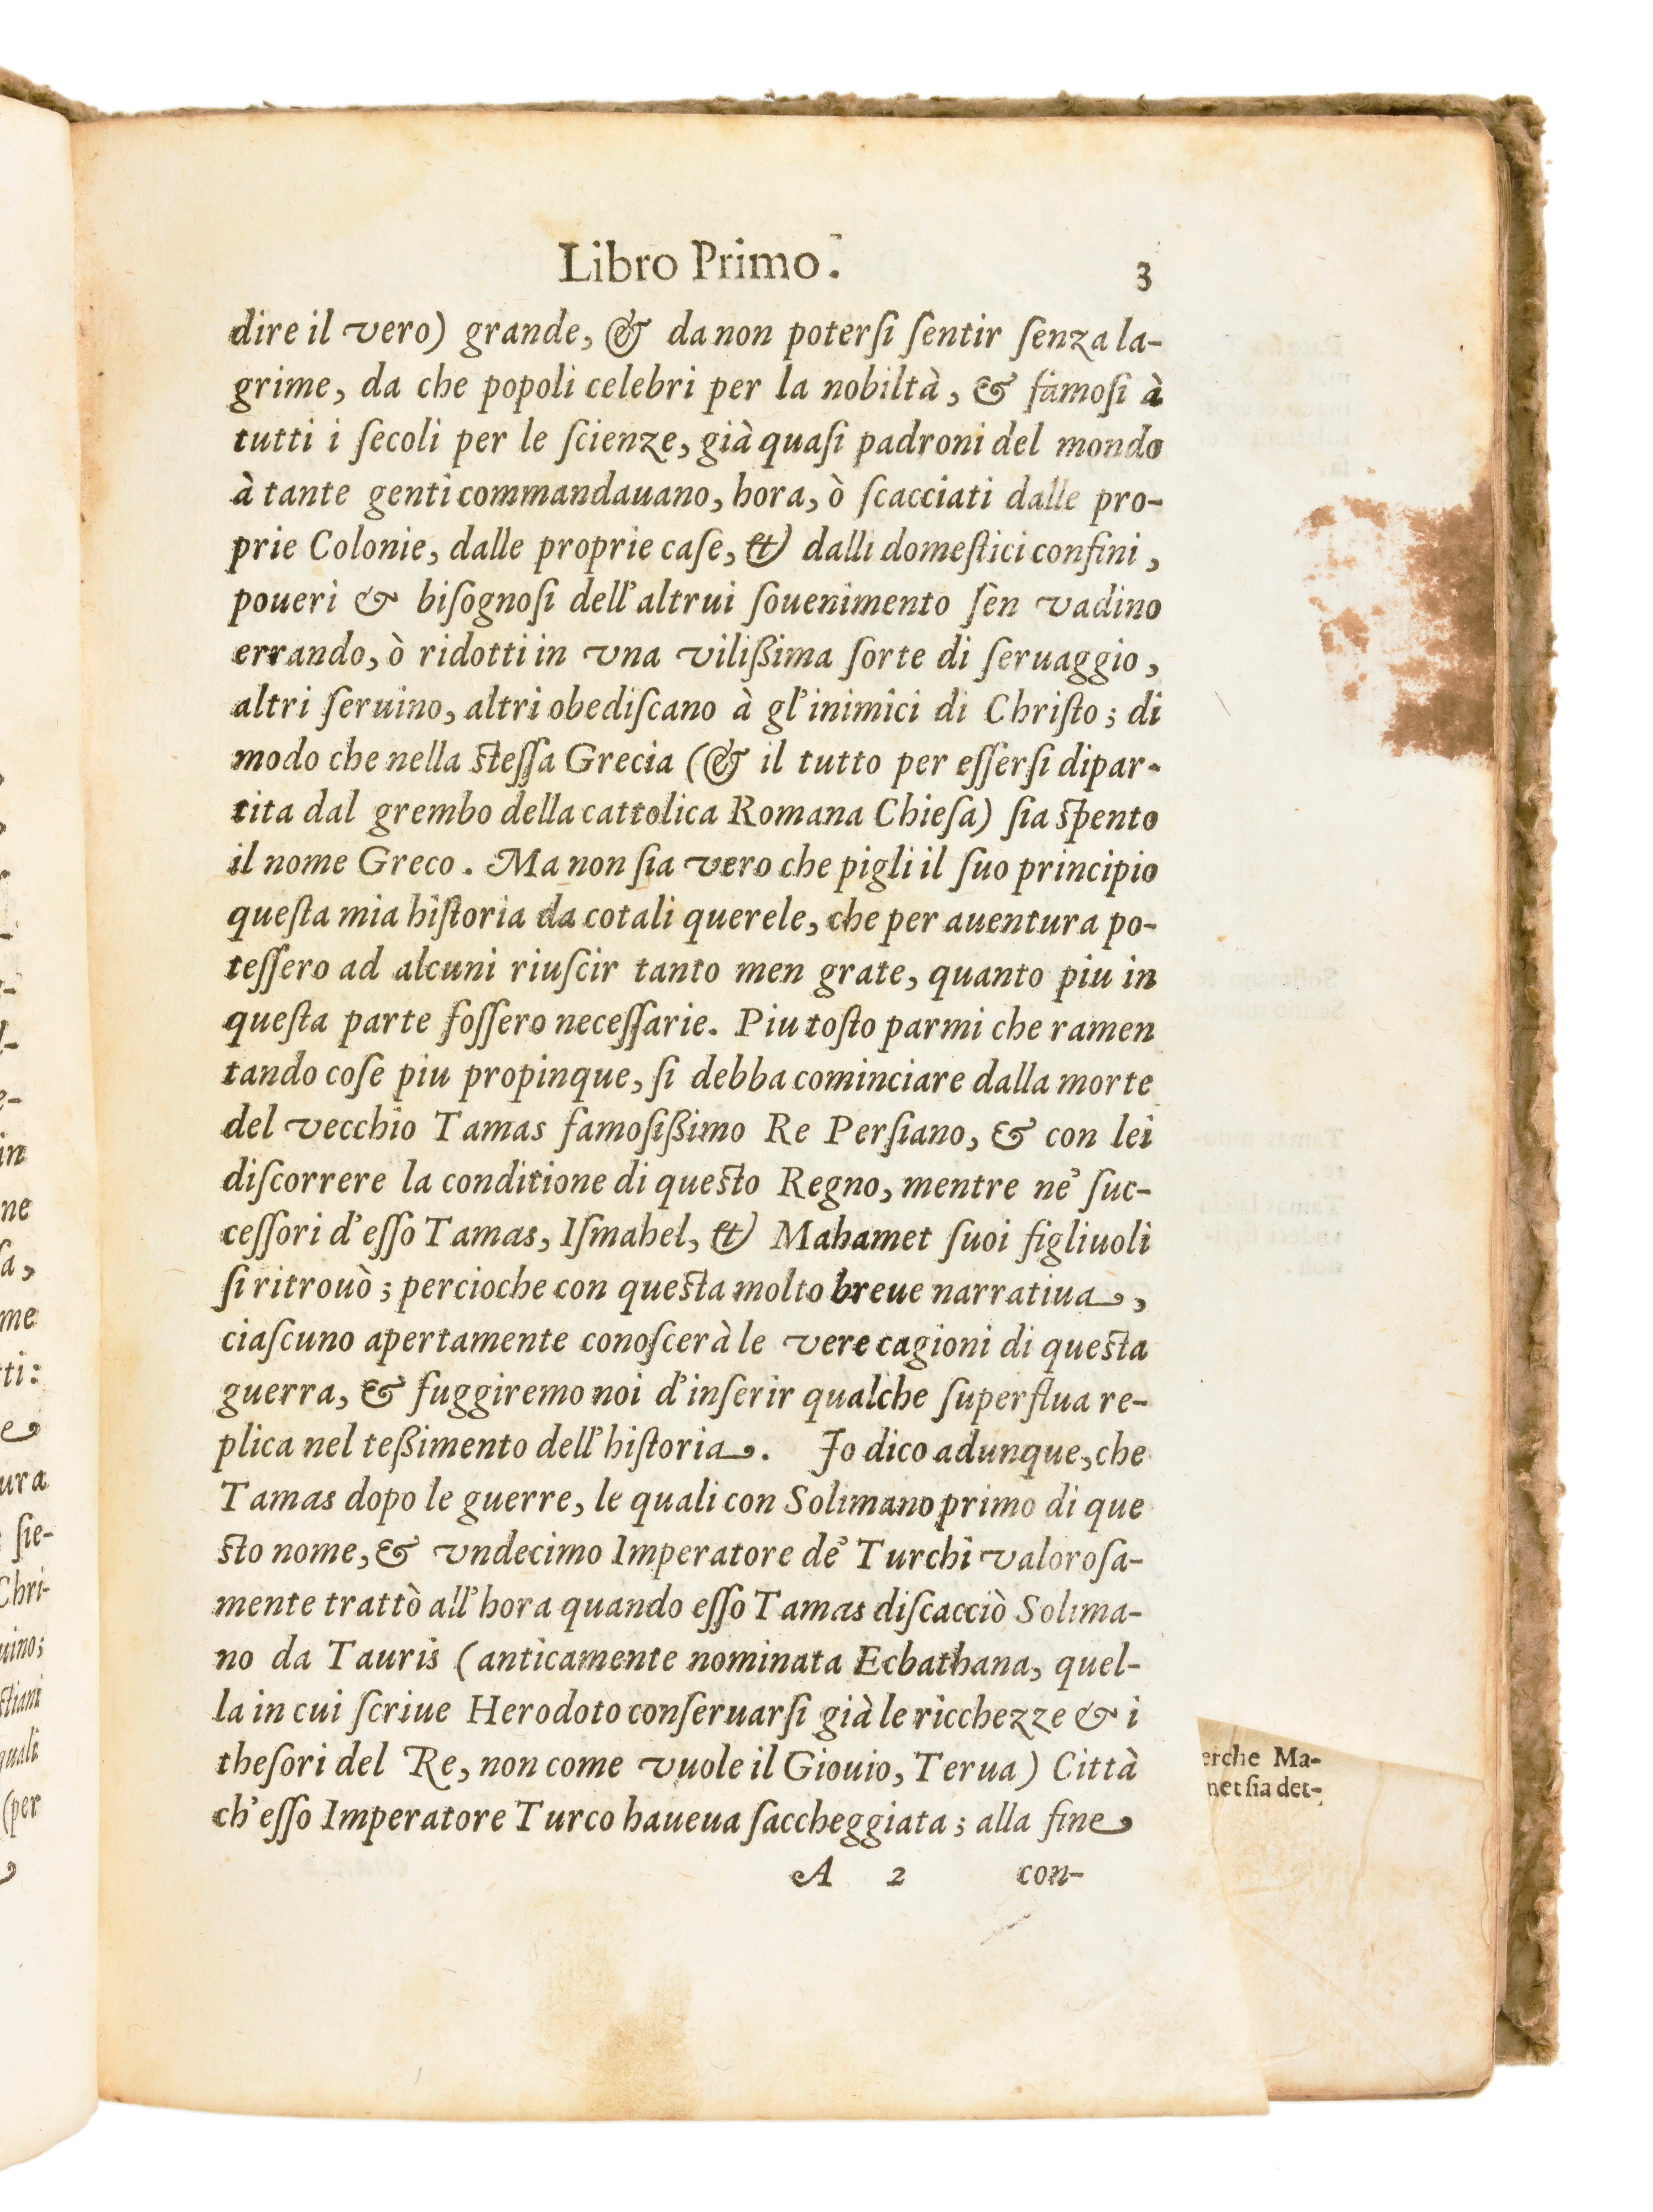 Libro Primo.
3
dire il vero) grande, & da non poterſi ſentir ſenza la-
grime, da che popoli celebri per la nobiltà, & famoſi à
tutti i ſecoli per le ſcienze, già quaſi padroni del mondo
à tante genti commandauano, hora, ò ſcacciati dalle pro-
prie Colonie, dalle proprie caſe, & dalli domeſtici confini,
poueri & biſognoſi dell'altrui ſouenimento ſen vadino
errando, ò ridotti in vna vilißima ſorte di ſeruaggio,
altri ſeruino, altri obediſcano à gl'inimici di Chriſto; di
modo che nella ſteſſa Grecia (& il tutto per eſſerſi dipar-
tita dal grembo della cattolica Romana Chieſa) ſia ſpento
il nome Greco. Ma non ſia vero che pigli il ſuo principio
queſta mia hiſtoria da cotali querele, che per auentura po-
teſſero ad alcuni riuſcir tanto men grate, quanto piu in
queſta parte foſſero neceſſarie. Piu toſto parmi che ramen
tando coſe piu propinque, ſi debba cominciare dalla morte
del vecchio Tamas famoſißimo Re Perſiano, & con lei
diſcorrere la conditione di queſto Regno, mentre ne' ſuc-
ceſſori d'eſſo Tamas, Iſmahel, & Mahamet ſuoi figliuoli
ſi ritrouò; percioche con queſta molto breue narratiua,
ciaſcuno apertamente conoſcerà le vere cagioni di queſta
guerra, & fuggiremo noi d'inſerir qualche ſuperflua re-
plica nel teßimento dell'hiſtoria. Io dico adunque, che
Tamas dopo le guerre, le quali con Solimano primo di que
ſto nome, & vndecimo Imperatore de' Turchi valoroſa-
mente trattò all'hora quando eſſo Tamas diſcacciò Solima-
no da Tauris (anticamente nominata Ecbathana, quel-
la in cui ſcriue Herodoto conſeruarſi già le ricchezze & i
theſori del Re, non come vuole il Giouio, Terua) Città
ch'eſſo Imperatore Turco haueua ſaccheggiata; alla fine
A 2 con-
erche Ma-
net ſia det-